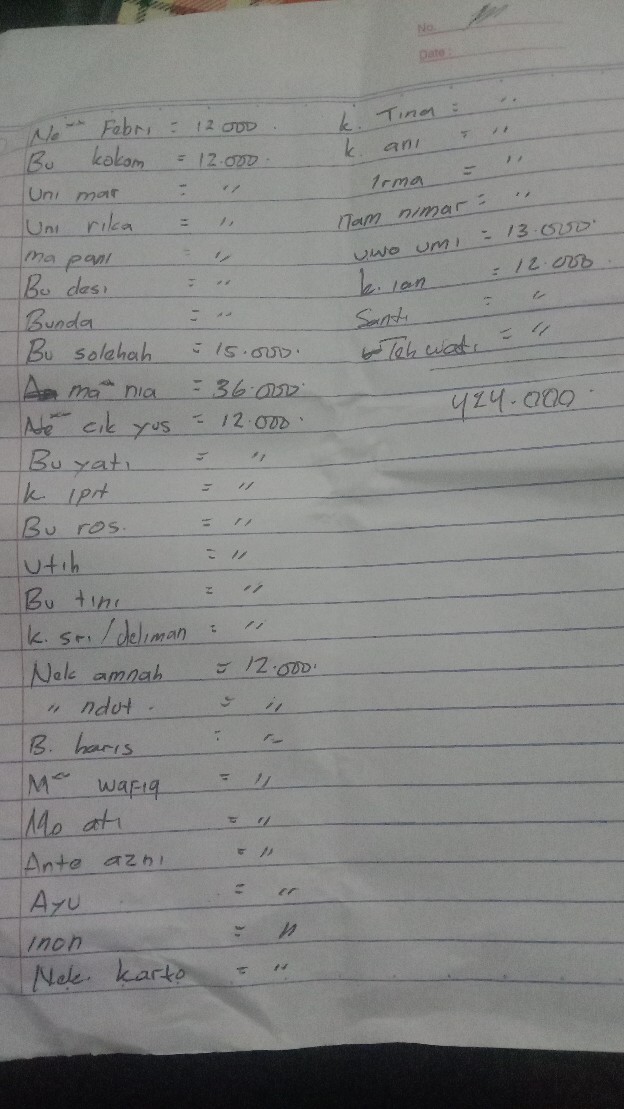 No.
Date:
Ne" Febri = 12.000.
Bu kokom = 12.000.
Uni mar = "
Uni rika = "
ma pani = "
Bu desi = "
Bunda = "
Bu solehah = 15.000.
ma" nia = 36.000.
Ne" cik yus = 12.000.
Bu yati = "
k. ipit = "
Bu ros. = "
Utih = "
Bu tini = "
k. sri/deliman = "
Nek amnah = 12.000.
" ndut. = "
B. haris = "
M" wafiq = "
Mo ati = "
Ante azni = "
Ayu = "
inon = "
Nek. karto = "
k. Tina = "
k. ani = "
Irma = "
mam nimar = "
uwo umi = 13.000.
k. ian = 12.000
Santi = "
Teh wati = "
424.000.